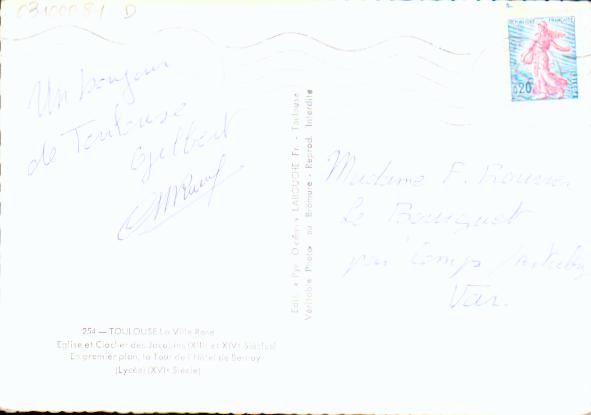 03100081 D
REPUBLIQUE FRANÇAISE
0,20
Un bonjour
de Toulouse
Gilbert
Madame F.
Le Bouquet
par Comps
Var.
Véritable Photo au Bromure - Reprod. Interdite
LABOUCHE Fr. - Toulouse
254 — TOULOUSE La Ville Rose
Eglise et Clocher des Jacobins (XIIIe et XIVe Siècles)
En premier plan, la Tour de l'Hôtel de Bernuy
(Lycée) (XVIe Siècle)